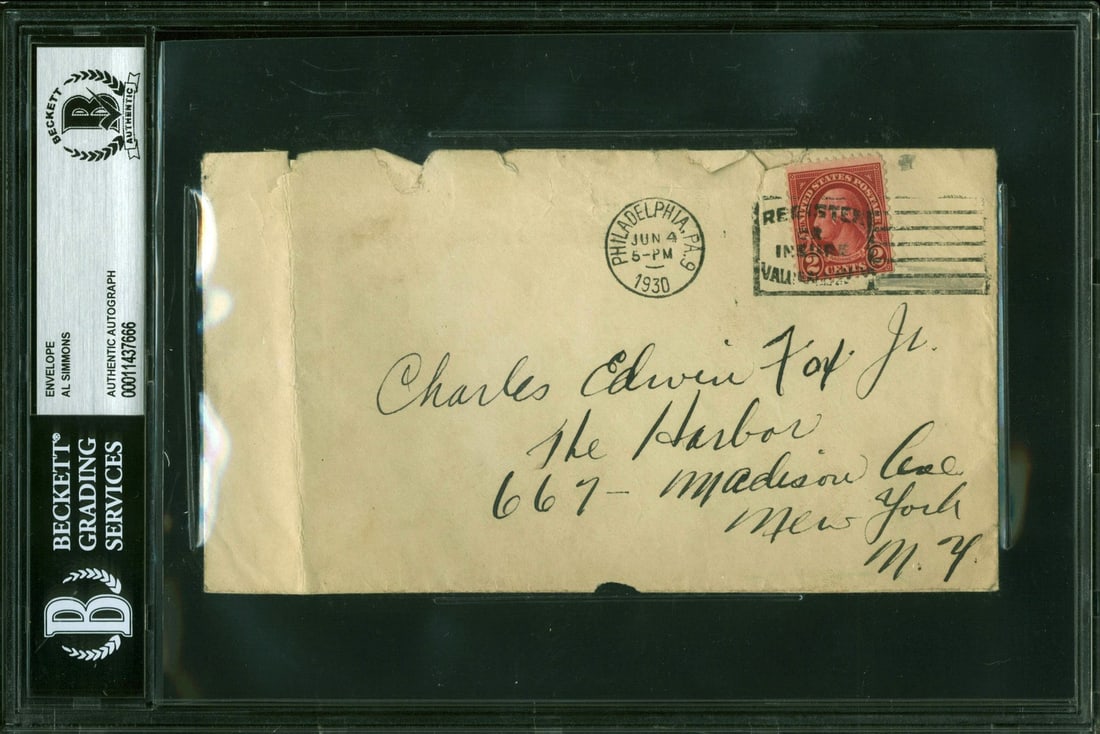 BECKETT
B
AUTHENTIC
ENVELOPE
AL SIMMONS
AUTHENTIC AUTOGRAPH
00011437666
BECKETT®
GRADING
SERVICES
B
PHILADELPHIA, PA. 9
JUN 4
5-PM
1930
UNITED STATES POSTAGE
2 CENTS 2
REGISTER
INSURE
Charles Edwin Fox Jr.
The Harbor
667 - Madison Ave
New York
N. Y.